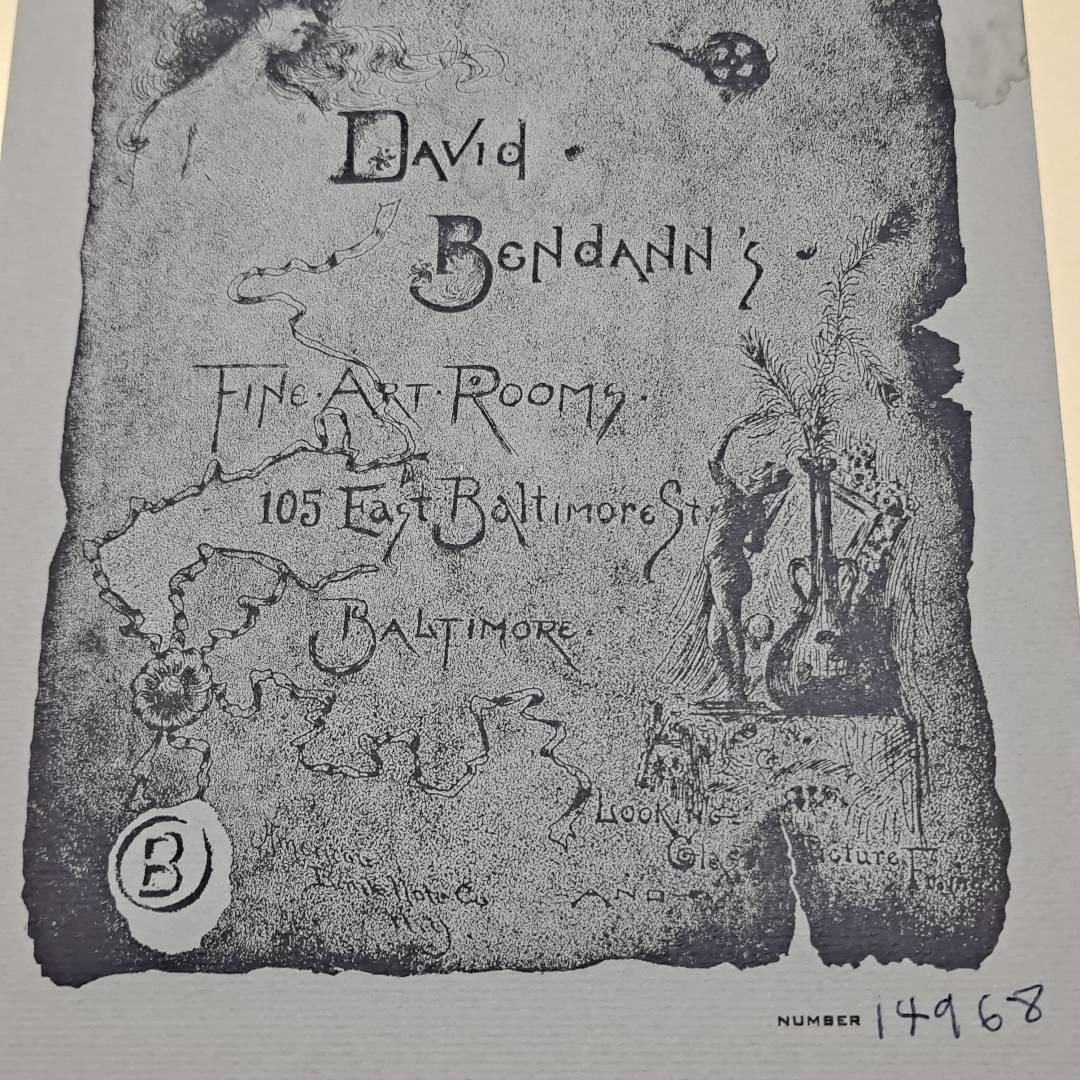 David
Bendann's
Fine · Art · Rooms.
105 East Baltimore St.
Baltimore.
Looking
Glass Picture
AND
B
American
Bank Note Co
NUMBER 14968